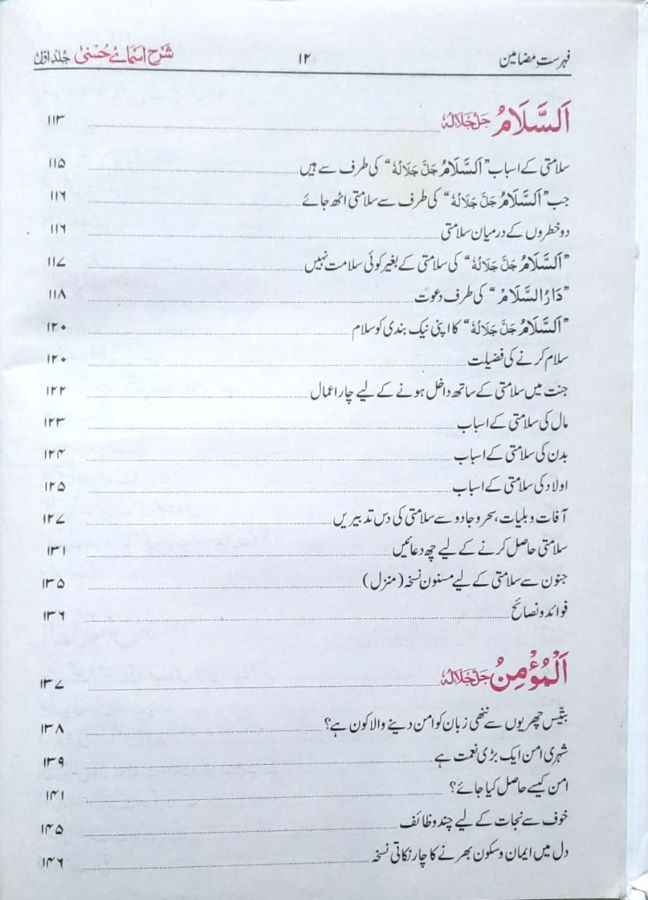 فہرستِ مضامین ۱۲ شرح اسمائے حُسنیٰ جلد اوّل
اَلسَّلَامُ جَلَّ جَلَالُہٗ ۱۱۳
سلامتی کے اسباب ”اَلسَّلَامُ جَلَّ جَلَالُہٗ“ کی طرف سے ہیں ۱۱۵
جب ”اَلسَّلَامُ جَلَّ جَلَالُہٗ“ کی طرف سے سلامتی اٹھ جائے ۱۱۶
دو خطروں کے درمیان سلامتی ۱۱۶
”اَلسَّلَامُ جَلَّ جَلَالُہٗ“ کی سلامتی کے بغیر کوئی سلامت نہیں ۱۱۷
”دَارُ السَّلَامْ“ کی طرف دعوت ۱۱۸
”اَلسَّلَامُ جَلَّ جَلَالُہٗ“ کا اپنی نیک بندی کو سلام ۱۲۰
سلام کرنے کی فضیلت ۱۲۰
جنت میں سلامتی کے ساتھ داخل ہونے کے لیے چار اعمال ۱۲۲
مال کی سلامتی کے اسباب ۱۲۳
بدن کی سلامتی کے اسباب ۱۲۴
اولاد کی سلامتی کے اسباب ۱۲۵
آفات و بلیات، سحر و جادو سے سلامتی کی دس تدبیریں ۱۲۷
سلامتی حاصل کرنے کے لیے چھ دعائیں ۱۳۱
جنون سے سلامتی کے لیے مسنون نسخہ (منزل) ۱۳۵
فوائد و نصائح ۱۳۶
اَلْمُؤْمِنُ جَلَّ جَلَالُہٗ ۱۳۷
بتیس چھریوں سے ننھی زبان کو امن دینے والا کون ہے؟ ۱۳۸
شہری امن ایک بڑی نعمت ہے ۱۳۹
امن کیسے حاصل کیا جائے؟ ۱۴۱
خوف سے نجات کے لیے چند وظائف ۱۴۵
دل میں ایمان و سکون بھرنے کا چار نکاتی نسخہ ۱۴۶